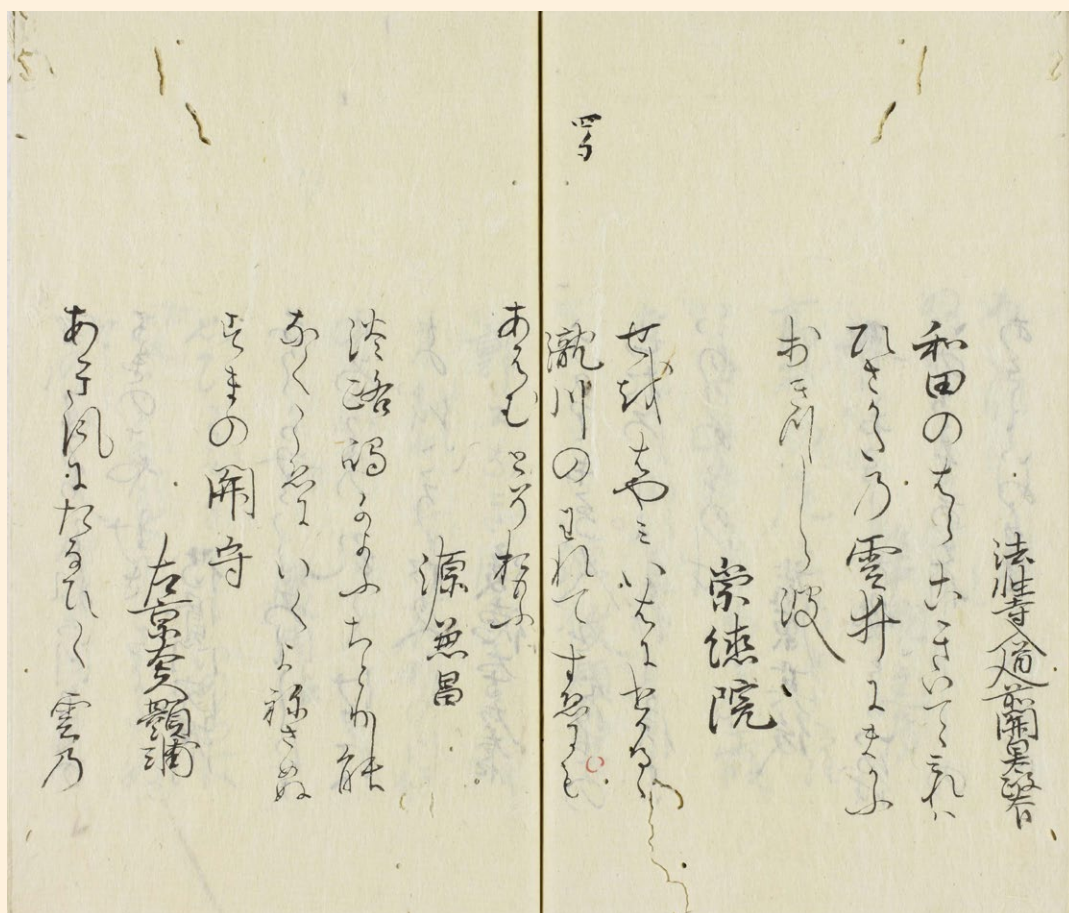 法性寺入道前関白
和田のはらこきいてゝみれは
ひさかたの雲井にまかふ
おきつしら波
崇徳院
せをはやみいはにせかるゝ
瀧川のわれてすゑにも
あはむとそおもふ
源兼昌
淡路嶋かよふちとりの
なくこゑにいくよねさめぬ
すまの関守
左京大夫顕輔
あき風にたなひく雲の